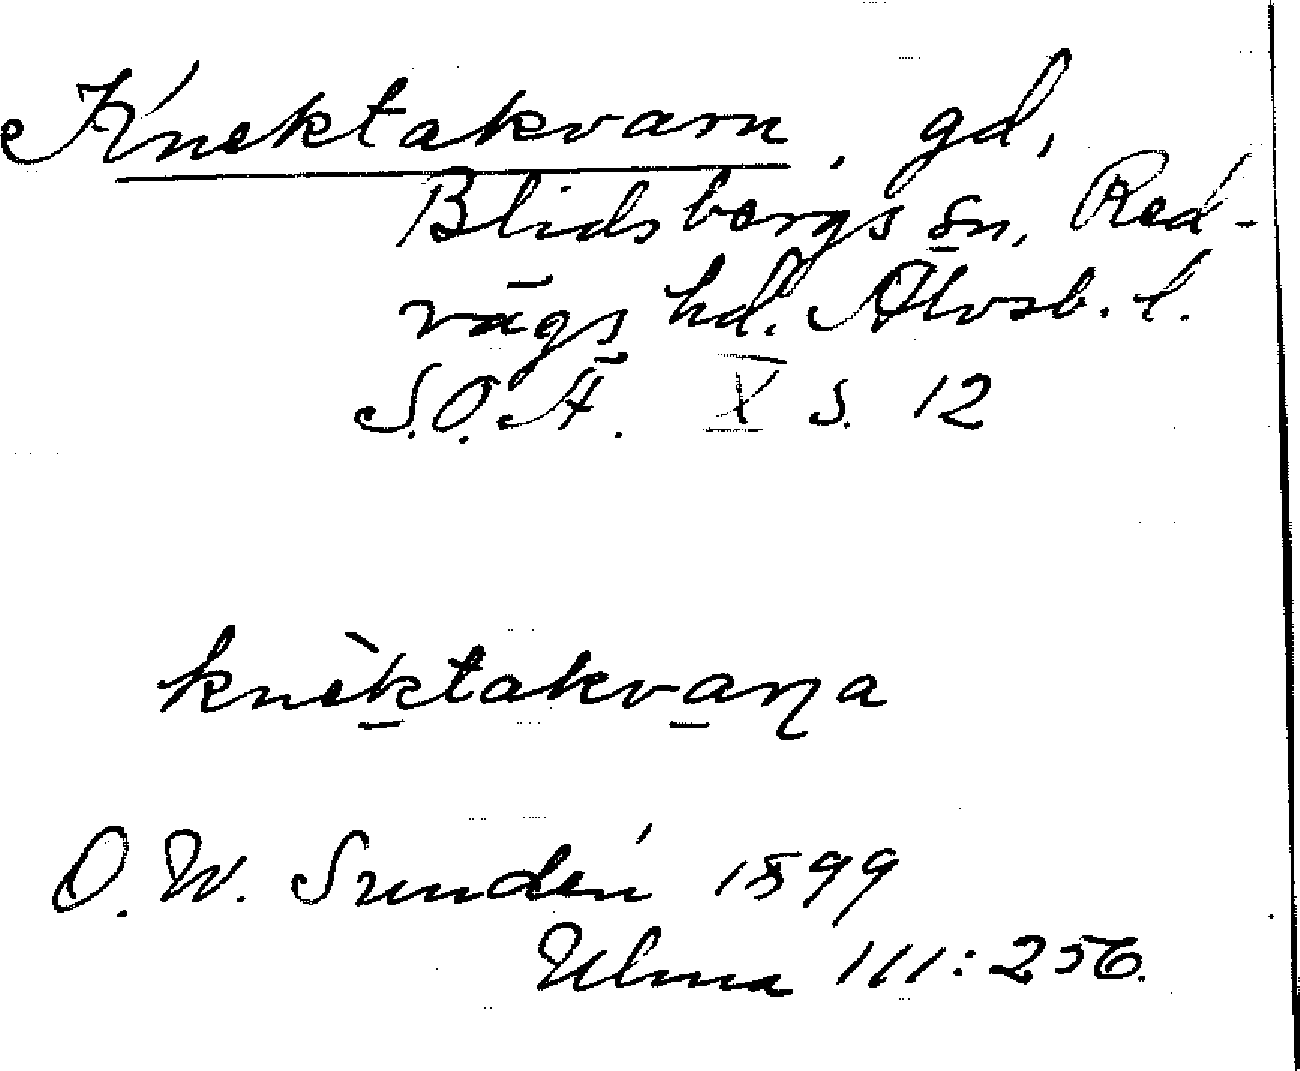 Knektakvarn, gd,
Blidsbergs sn, Red-
vägs hd. Älvsb. l.
S.O.Ä. X s. 12
knèktakvaɳa
O. W. Sundén 1899
Ulma 111:256.